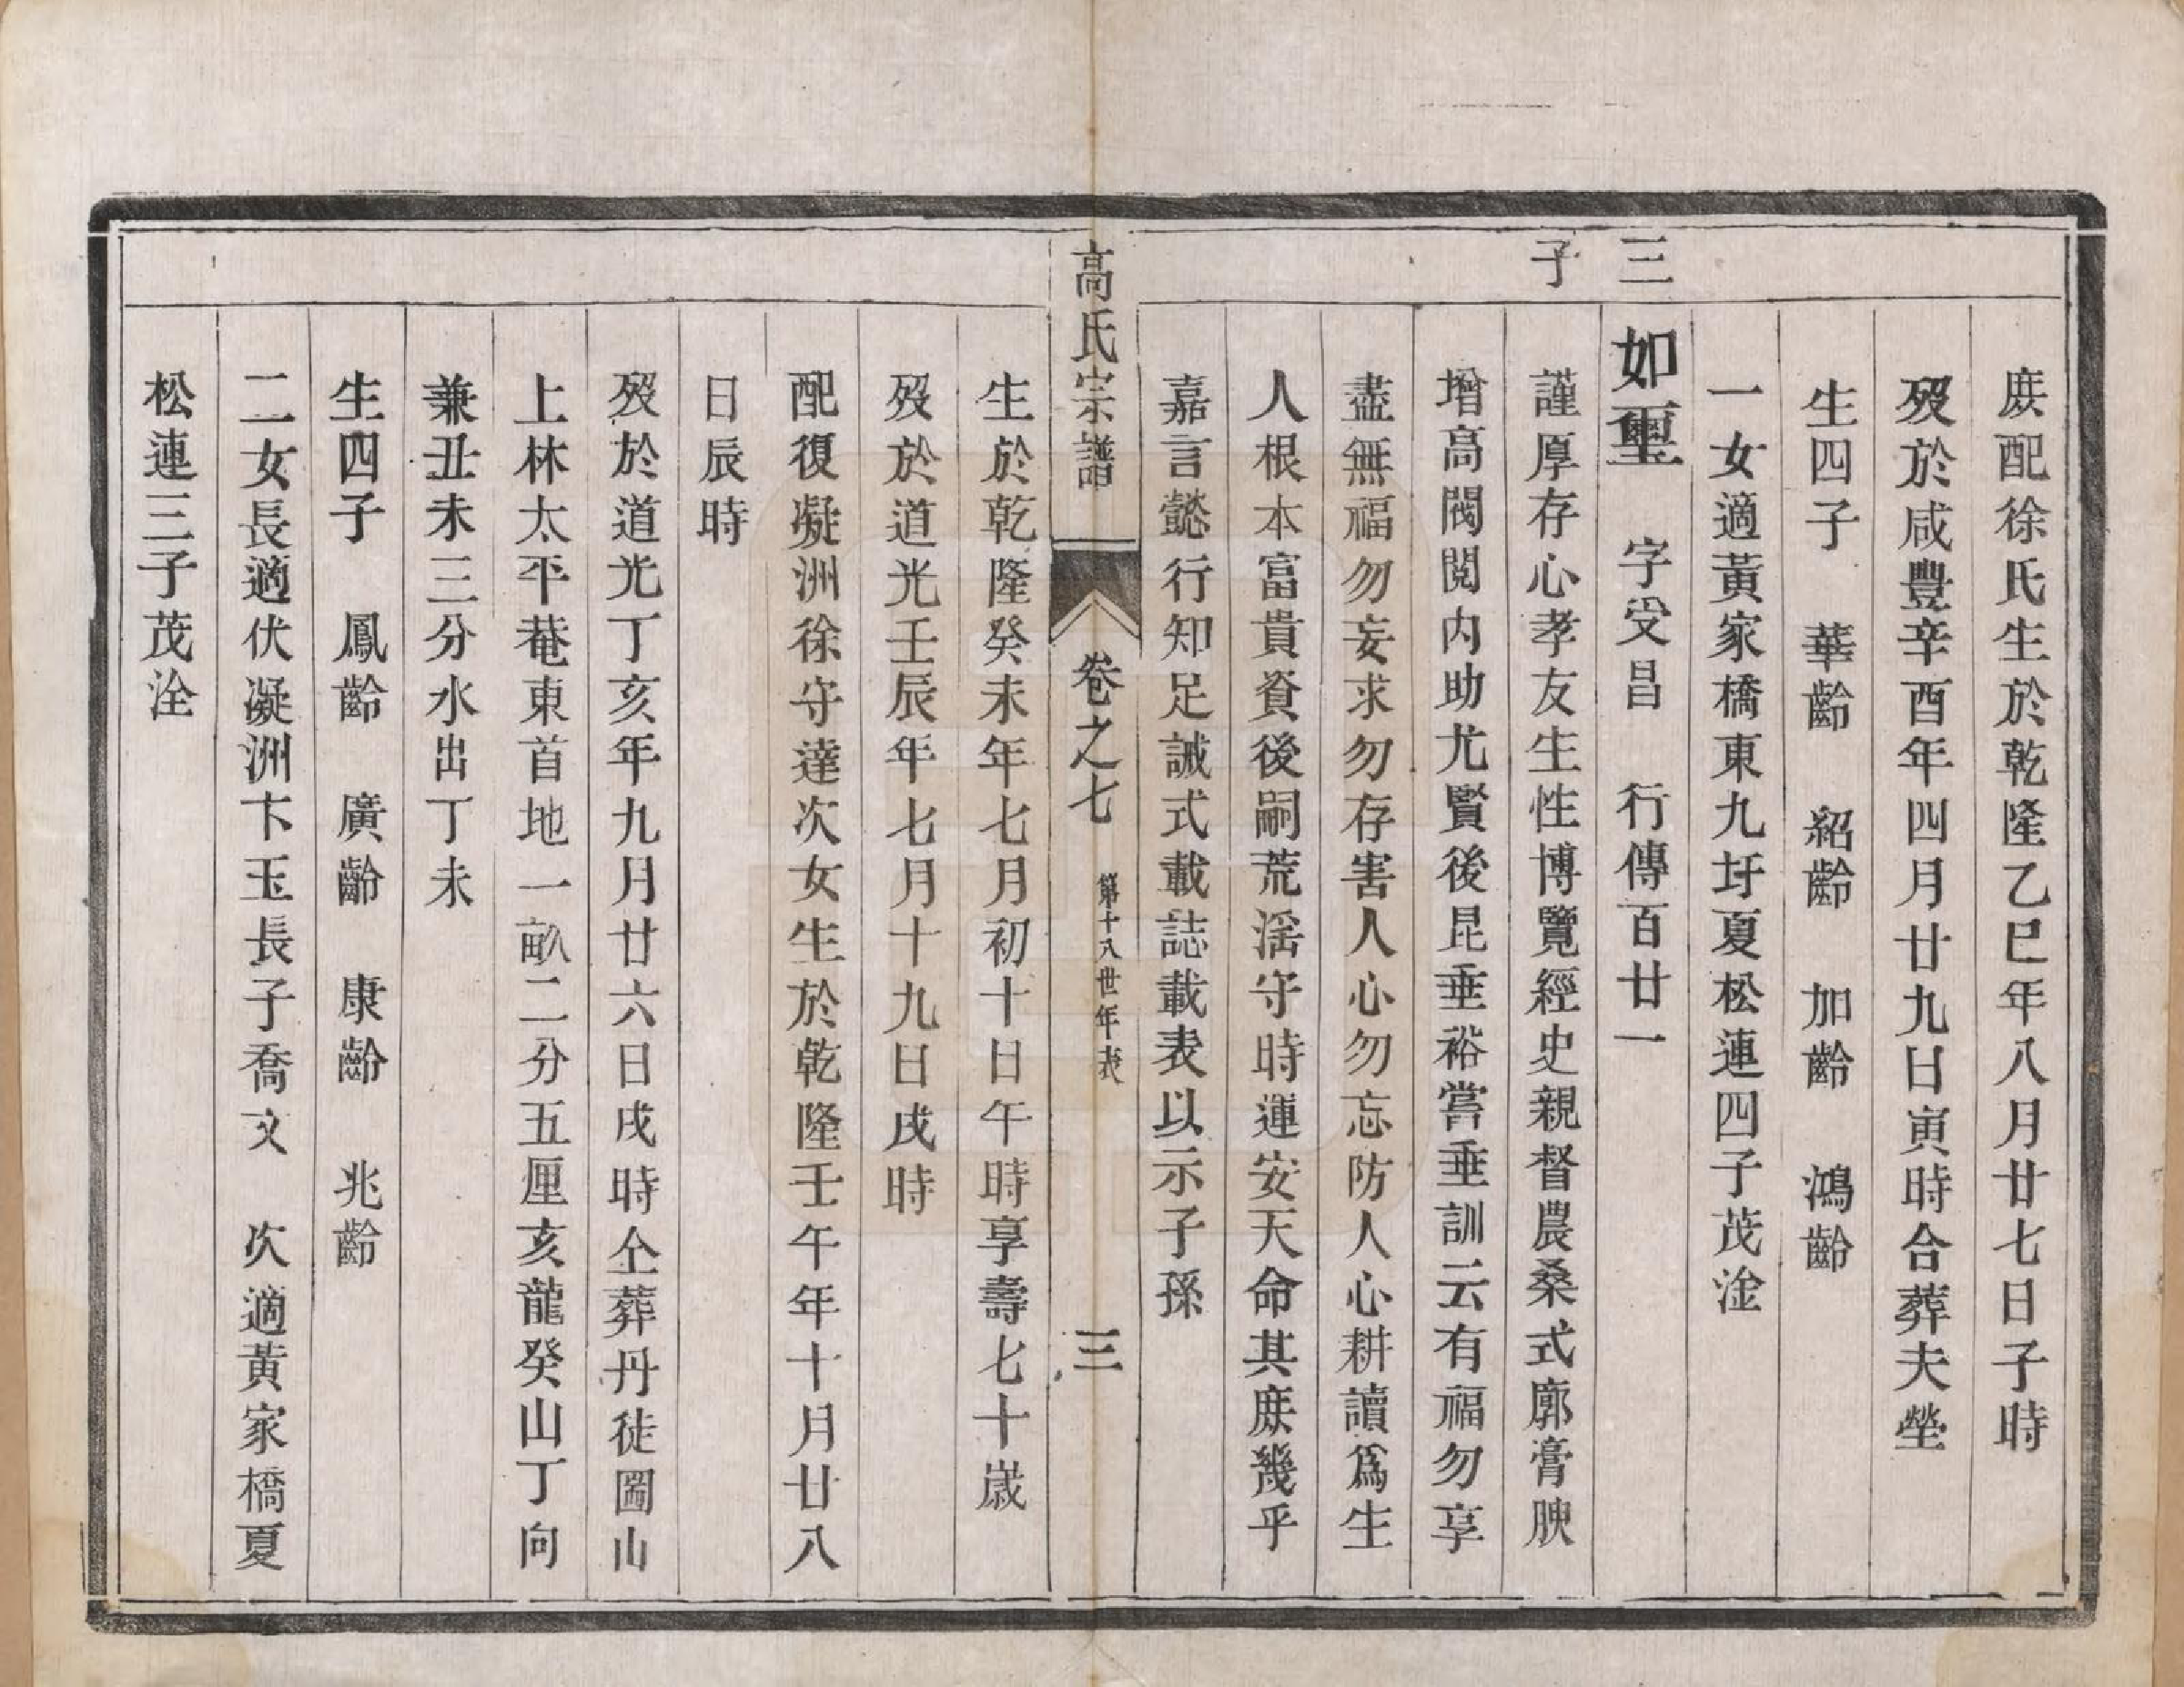 庶配徐氏生於乾隆乙巳年八月廿七日子時
歿於咸豐辛酉年四月廿九日寅時合葬夫塋
生四子　華齡　紹齡　加齡　鴻齡
一女適黃家橋東九圩夏松連四子茂淦
三子
如璽　字受昌　行傳百廿一
謹厚存心孝友生性博覽經史親督農桑式廓膏腴
增高閥閱内助尤賢後昆垂裕嘗垂訓云有福勿享
盡無福勿妄求勿存害人心勿忘防人心耕讀爲生
人根本富貴資後嗣荒滛守時運安天命其庶幾乎
嘉言懿行知足誡式載誌載表以示子孫
高氏宗譜　卷之七　第十八世年表　三
生於乾隆癸未年七月初十日午時享壽七十歲
歿於道光壬辰年七月十九日戌時
配復凝洲徐守達次女生於乾隆壬午年十月廿八
日辰時
歿於道光丁亥年九月廿六日戌時仝葬丹徒圌山
上林太平菴東首地一畝二分五厘亥龍癸山丁向
兼丑未三分水出丁未
生四子　鳳齡　廣齡　康齡　兆齡
二女長適伏凝洲卞玉長子喬文　次適黃家橋夏
松連三子茂洤